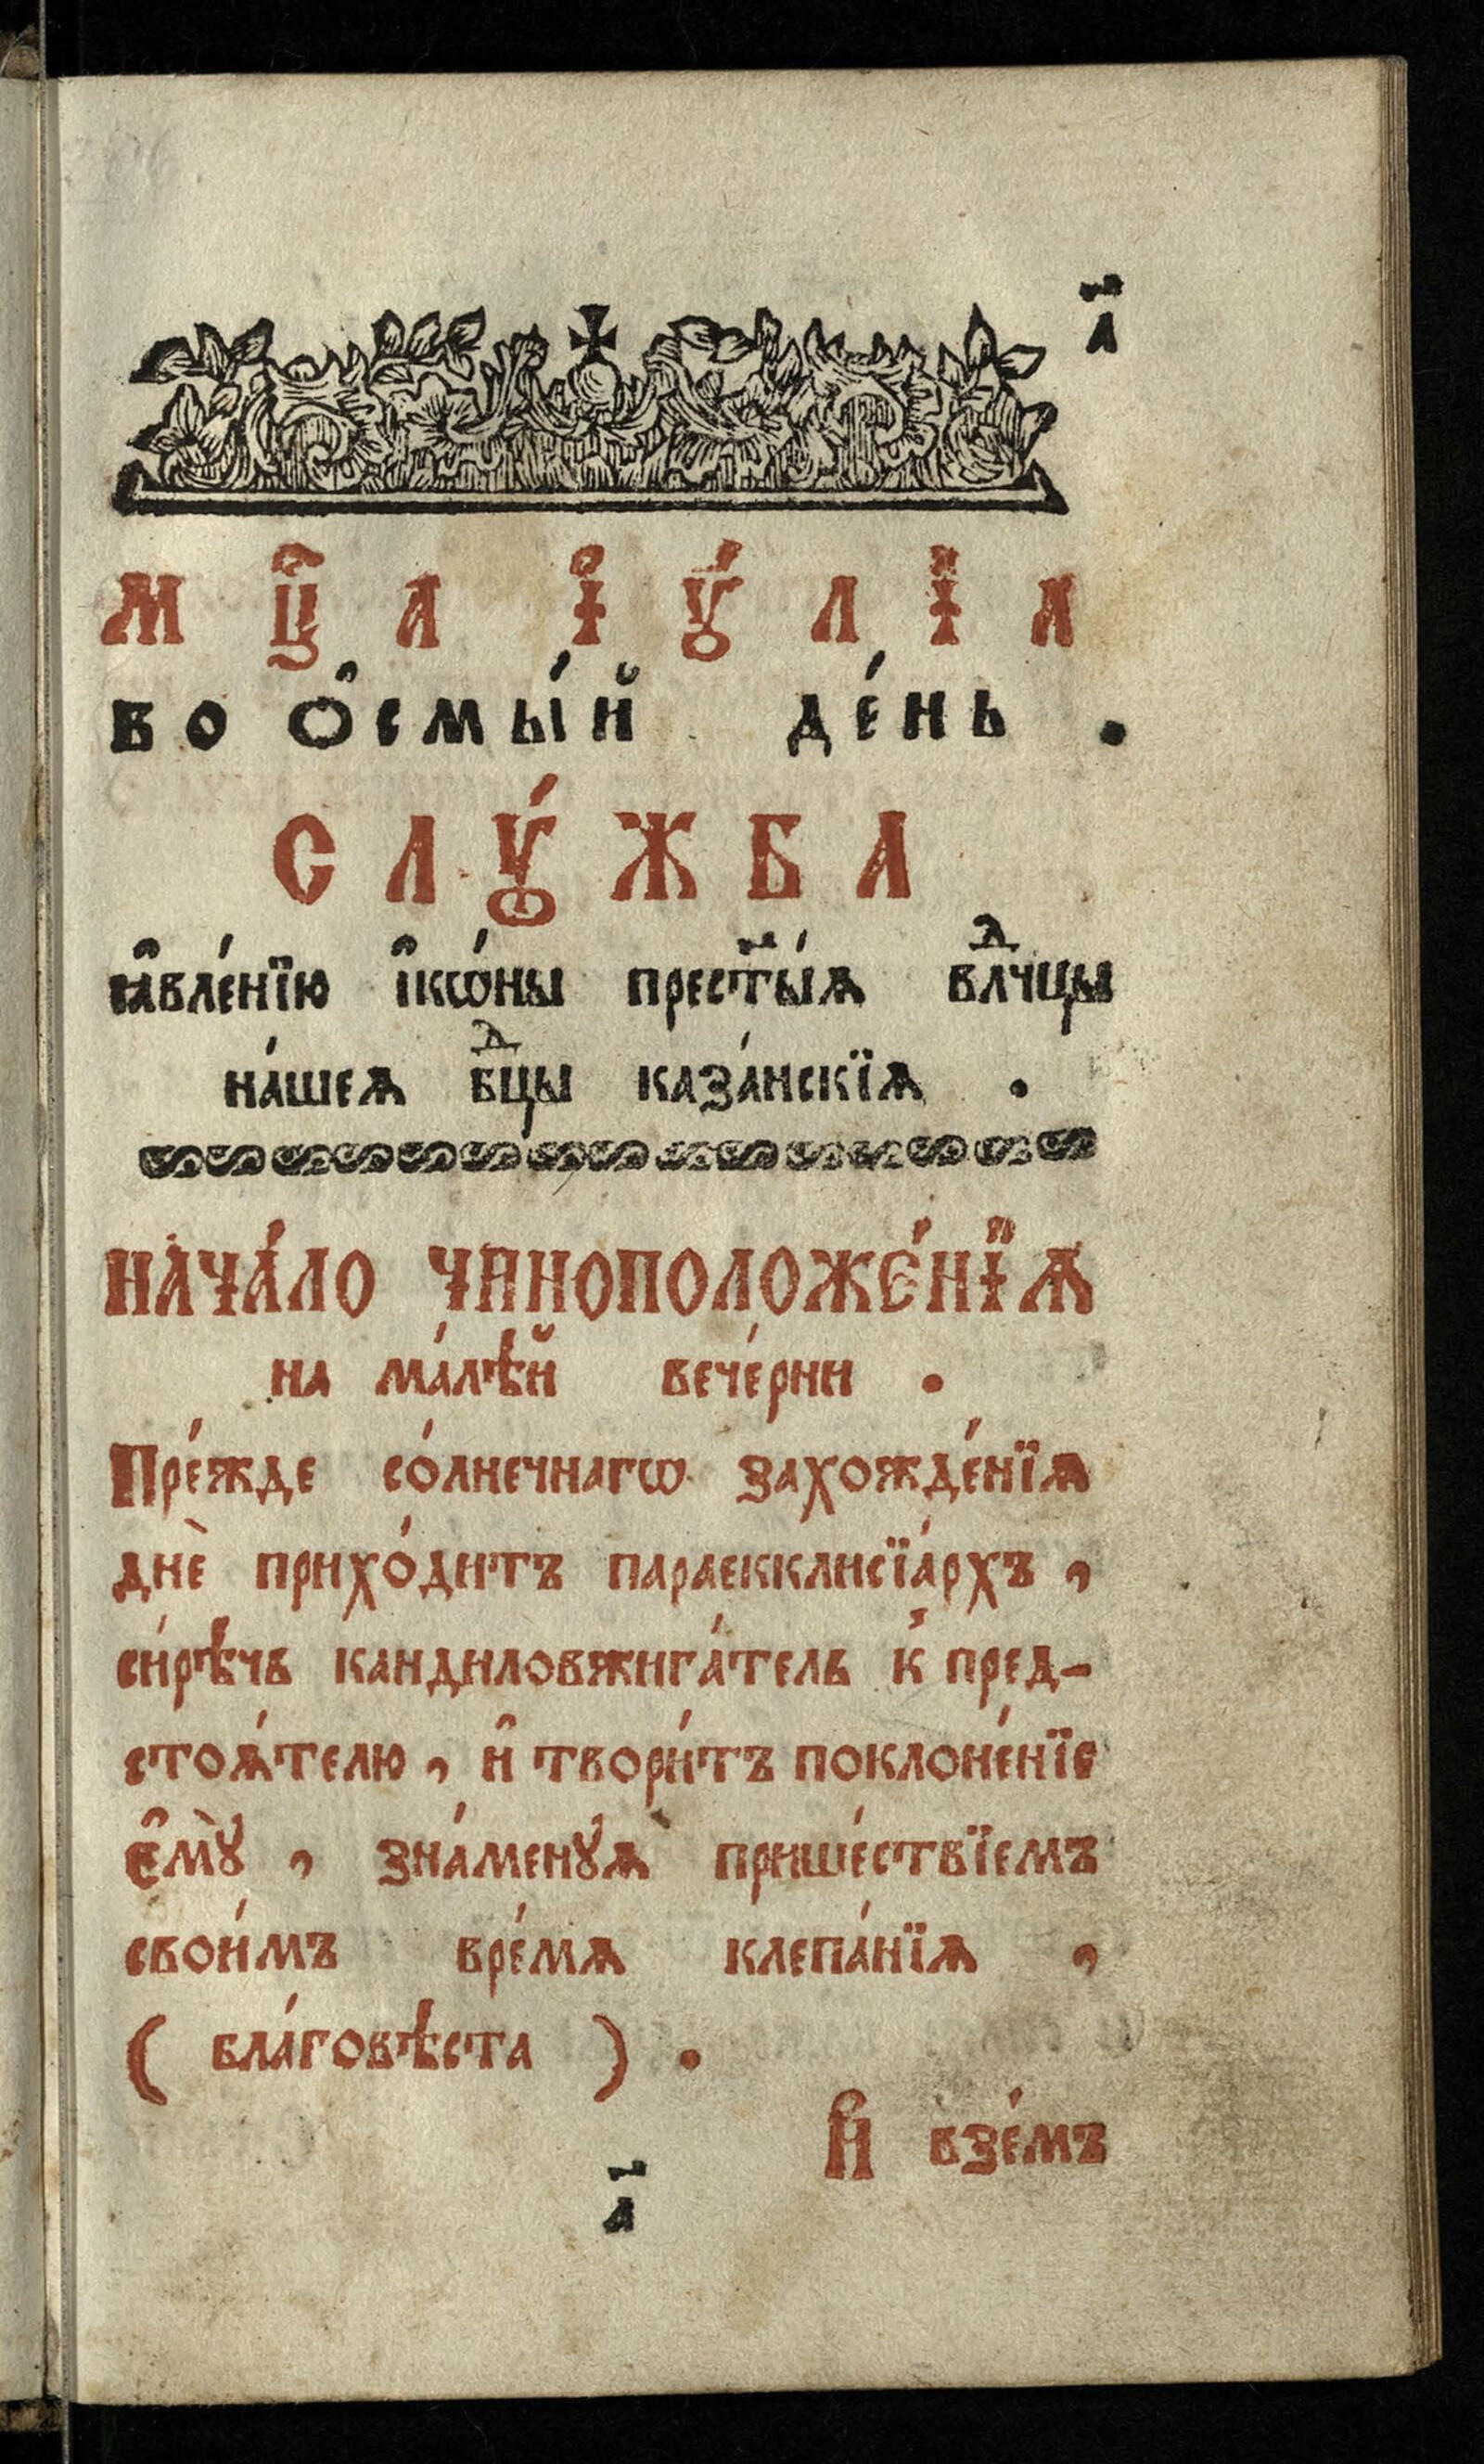 а҃
Мц҃а і҆ꙋ́лїа
во ѻ҆смы́й де́нь .
Слꙋ́жба
ꙗ҆вле́нїю і҆кѡ́ны прест҃ы́ѧ влⷣчцы
на́шеѧ бцⷣы каза́нскїѧ .
Нача́ло чиноположе́нїѧ
на ма́лѣй вече́рни .
Пре́жде со́лнечнагѡ захожде́нїѧ
днѐ прихо́дитъ параекклисїа́рхъ ,
си́рѣчь кандиловжига́тель к̾ пред-
стоѧ́телю , и҆ твори́тъ поклоне́нїе
є҆мꙋ̀ , зна́менꙋѧ прише́ствїемъ
свои́мъ вре́мѧ клепа́нїѧ ,
( бла́говѣста ) .
И҆ взе́мъ
а҃